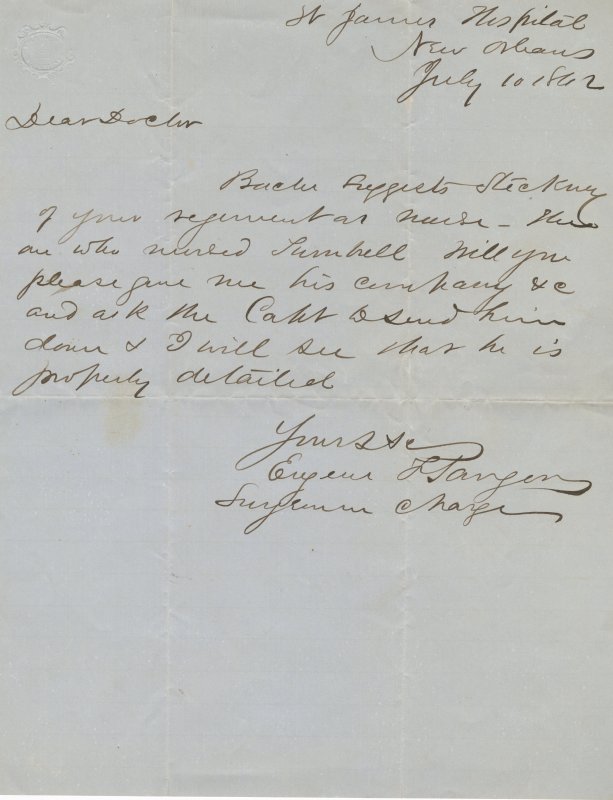 St James Hospital
New Orleans
July 10 1862
Dear Doctor
Bache suggests Stickney
of your regiment as nurse - the
one who nursed Turnbull Will you
please give me his company &c
and ask the Capt to send him
down & I will see that he is
properly detailed
Yours &c
Eugene F Sanger
Surgeon in charge